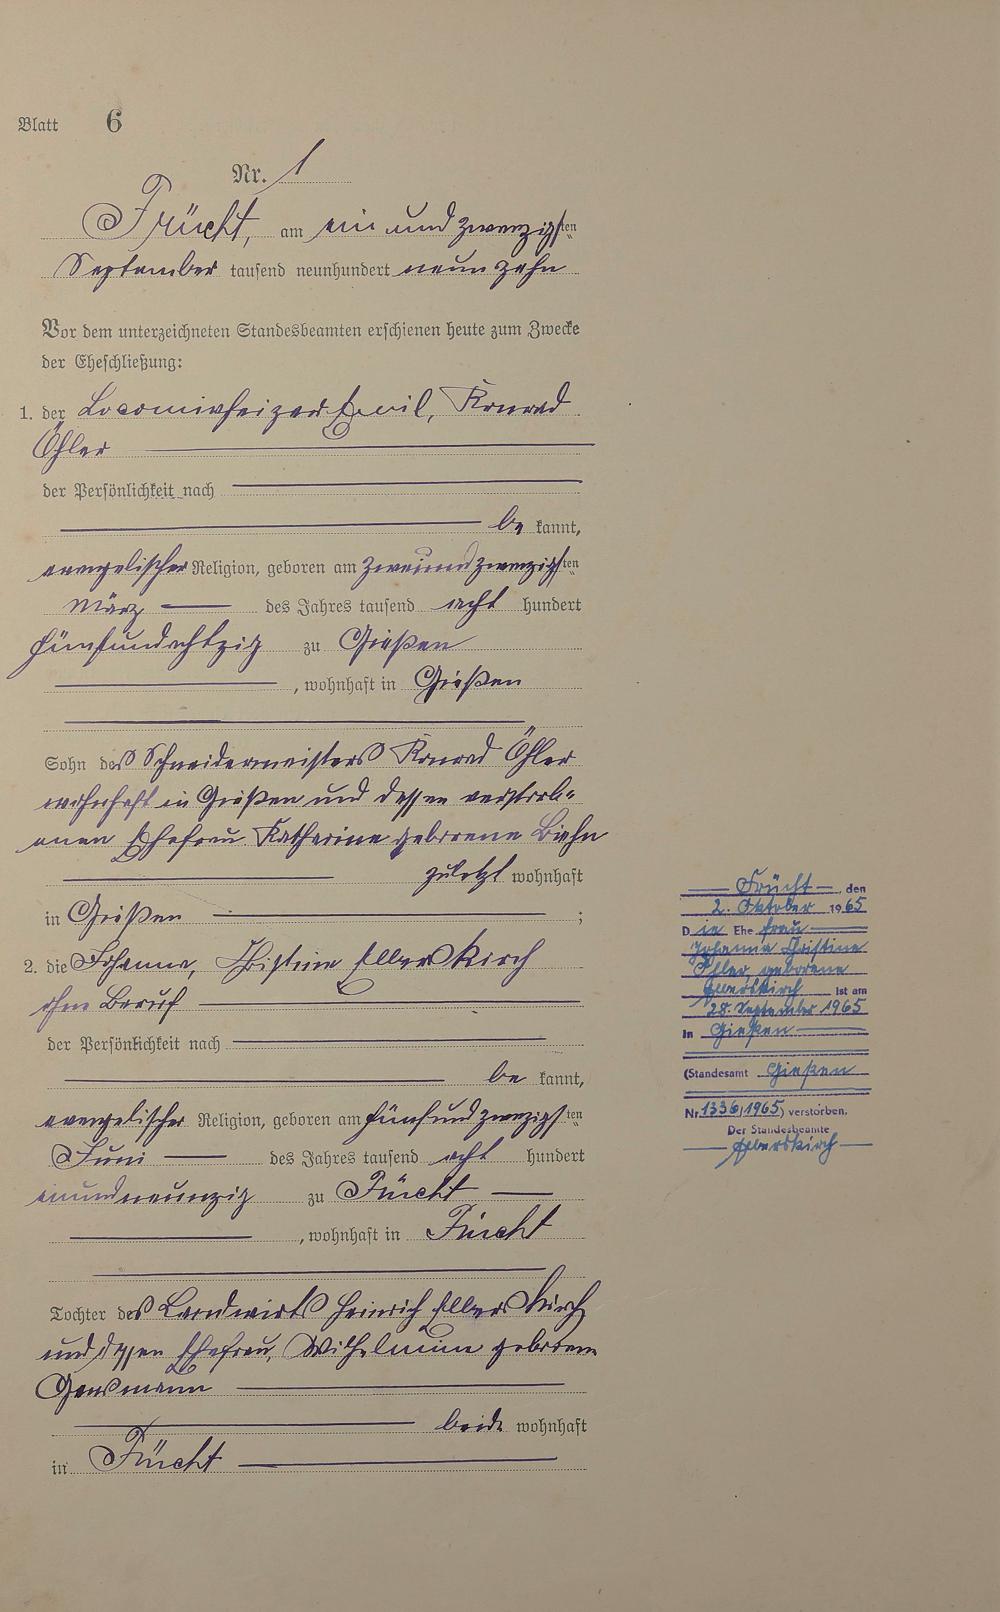 Blatt 6
Nr. 1
Frücht, am ein und zwanzigsten
September tausend neunhundert neun zehn
Vor dem unterzeichneten Standesbeamten erschienen heute zum Zwecke
der Eheschließung:
1. der Locomivheizer Emil, Konrad
Öhler
der Persönlichkeit nach
be kannt,
evangelischer Religion, geboren am zweiundzwanzigsten
März des Jahres tausend acht hundert
fünfundachtzig zu Gießen
, wohnhaft in Gießen
Sohn des Schneidermeisters Konrad Öhler
wohnhaft in Gießen und dessen verstorb-
enen Ehefrau Katharine geborene Biehn
zuletzt wohnhaft
in Gießen ;
2. die Johanna, Christine Ellerskirch
ohne Beruf
der Persönlichkeit nach
be kannt,
evangelischer Religion, geboren am fünfundzwanzigsten
Juni des Jahres tausend acht hundert
einundneunzig zu Fücht
, wohnhaft in Fücht
Tochter des Landwirts Heinrich Ellerskirch
und dessen Ehefrau, Wilhelmine geborene
Gensmann
beide wohnhaft
in Fücht
Frücht, den
2. Oktober 1965
Die Ehefrau
Johanna Christine
Öhler, geborene
ist am
28. September 1965
in Gießen
(Standesamt Gießen
Nr. 1336/1965) verstorben.
Der Standesbeamte